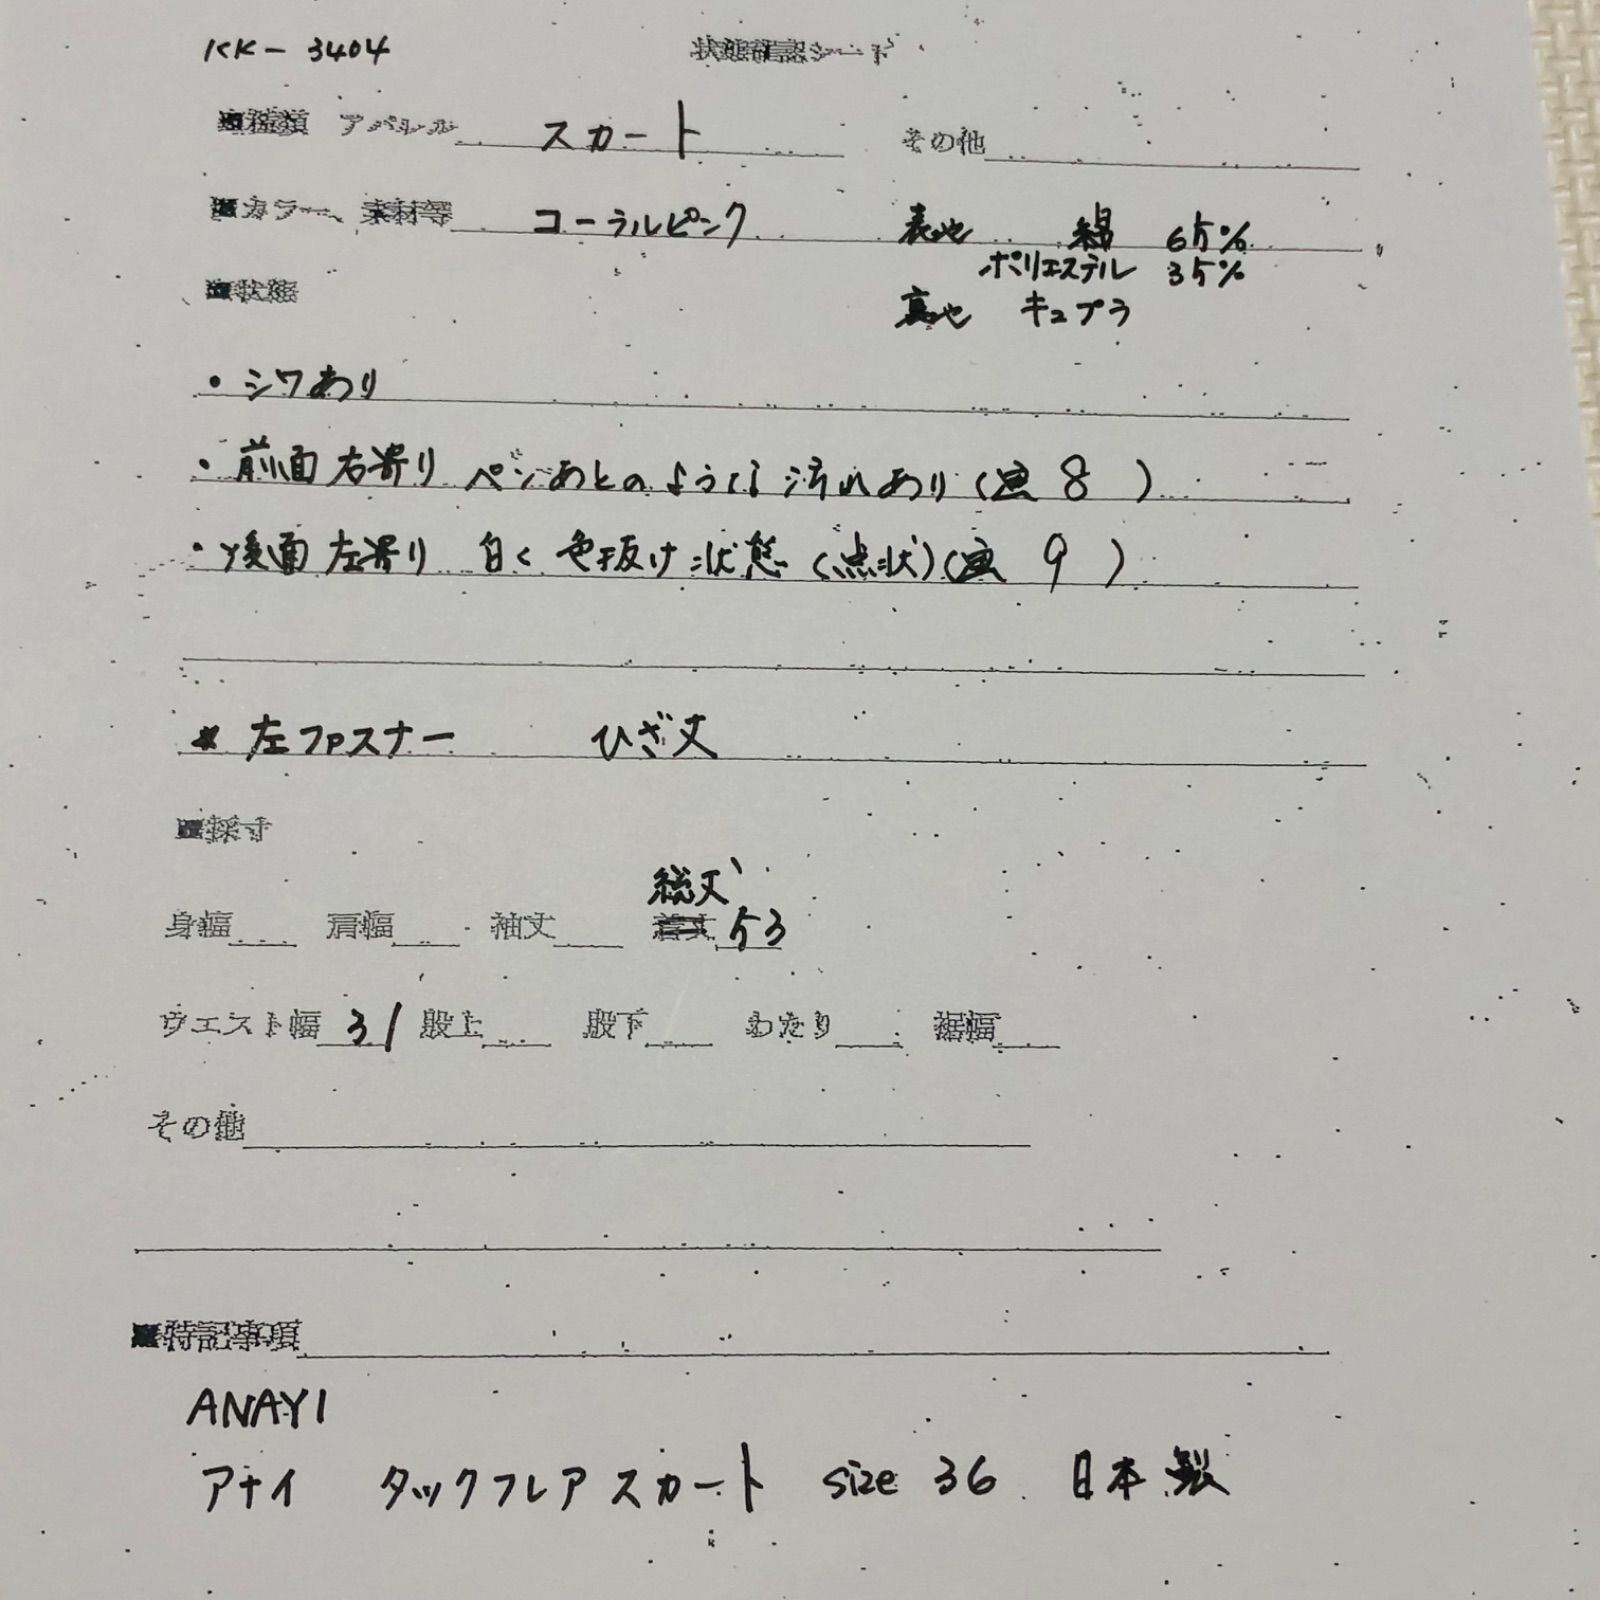 KK-3404 状態確認シート
■種類 アパレル スカート その他
■カラー、素材等 コーラルピンク 表地 綿 65%
ポリエステル 35%
■状態 裏地 キュプラ
・シワあり
・前面右寄り ペンあとのような汚れあり(画 8 )
・後面左寄り 白く色抜け状態(点状)(画 9 )
* 左ファスナー ひざ丈
■採寸
総丈
身幅 肩幅 袖丈 着丈 53
ウエスト幅 31 股上 股下 わたり 裾幅
その他
■特記事項
ANAYI
アナイ タックフレアスカート size 36 日本製